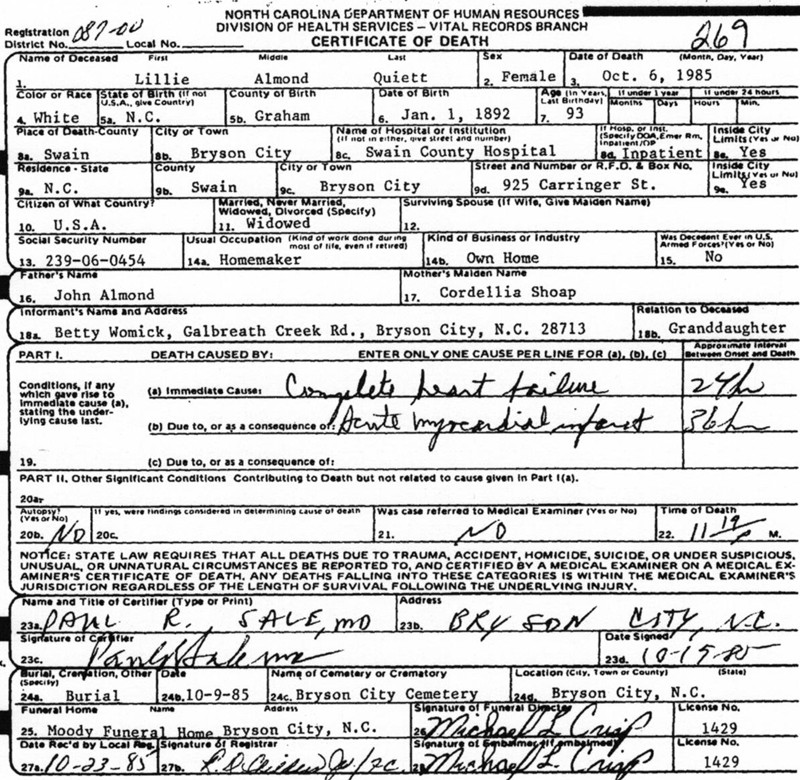 NORTH CAROLINA DEPARTMENT OF HUMAN RESOURCES
DIVISION OF HEALTH SERVICES – VITAL RECORDS BRANCH
CERTIFICATE OF DEATH
269
Registration District No. 087-00 Local No.
Name of Deceased First Middle Last Sex Date of Death (Month, Day, Year)
1. Lillie Almond Quiett 2. Female 3. Oct. 6, 1985
Color or Race State of Birth (If not U.S.A., give Country) County of Birth Date of Birth Age (In Years, Last Birthday) If under 1 year Months Days If under 24 hours Hours Min.
4. White 5a. N.C. 5b. Graham 6. Jan. 1, 1892 7. 93
Place of Death-County City or Town Name of Hospital or Institution (If not in either, give street and number) If Hosp. or Inst. (Specify DOA, Emer Rm, Inpatient/OP Inside City Limits (Yes or No)
8a. Swain 8b. Bryson City 8c. Swain County Hospital 8d. Inpatient 8e. Yes
Residence - State County City or Town Street and Number or R.F.D. & Box No. Inside City Limits (Yes or No)
9a. N.C. 9b. Swain 9c. Bryson City 9d. 925 Carringer St. 9e. Yes
Citizen of What Country? Married, Never Married, Widowed, Divorced (Specify) Surviving Spouse (If Wife, Give Maiden Name)
10. U.S.A. 11. Widowed 12.
Social Security Number Usual Occupation (Kind of work done during most of life, even if retired) Kind of Business or Industry Was Decedent Ever in U.S. Armed Forces? (Yes or No)
13. 239-06-0454 14a. Homemaker 14b. Own Home 15. No
Father's Name Mother's Maiden Name
16. John Almond 17. Cordellia Shoap
Informant's Name and Address Relation to Deceased
18a. Betty Womick, Galbreath Creek Rd., Bryson City, N.C. 28713 18b. Granddaughter
PART I. DEATH CAUSED BY: ENTER ONLY ONE CAUSE PER LINE FOR (a), (b), (c) Approximate Interval Between Onset and Death
Conditions, if any which gave rise to immediate cause (a), stating the underlying cause last.
(a) Immediate Cause: Complete heart failure 24h
(b) Due to, or as a consequence of: Acute myocardial infarct 36h
19. (c) Due to, or as a consequence of:
PART II. Other Significant Conditions Contributing to Death but not related to cause given in Part I(a).
20a.
Autopsy? (Yes or No) If yes, were findings considered in determining cause of death Was case referred to Medical Examiner (Yes or No) Time of Death
20b. NO 20c. 21. NO 22. 11 19 P M.
NOTICE: STATE LAW REQUIRES THAT ALL DEATHS DUE TO TRAUMA, ACCIDENT, HOMICIDE, SUICIDE, OR UNDER SUSPICIOUS,
UNUSUAL, OR UNNATURAL CIRCUMSTANCES BE REPORTED TO, AND CERTIFIED BY A MEDICAL EXAMINER ON A MEDICAL EX-
AMINER'S CERTIFICATE OF DEATH. ANY DEATHS FALLING INTO THESE CATEGORIES IS WITHIN THE MEDICAL EXAMINER'S
JURISDICTION REGARDLESS OF THE LENGTH OF SURVIVAL FOLLOWING THE UNDERLYING INJURY.
Name and Title of Certifier (Type or Print) Address
23a. PAUL R. SALE, MD 23b. BRYSON CITY, N.C.
Signature of Certifier Date Signed
23c. Paul R Sale MD 23d. 10-15-85
Burial, Cremation, Other (Specify) Date Name of Cemetery or Crematory Location (City, Town or County) (State)
24a. Burial 24b. 10-9-85 24c. Bryson City Cemetery 24d. Bryson City, N.C.
Funeral Home Name Address Signature of Funeral Director License No.
25. Moody Funeral Home Bryson City, N.C. 26. Michael L Crisp 1429
Date Rec'd by Local Reg. Signature of Registrar Signature of Embalmer (If embalmed) License No.
27a. 10-23-85 27b. Michael L Crisp 1429